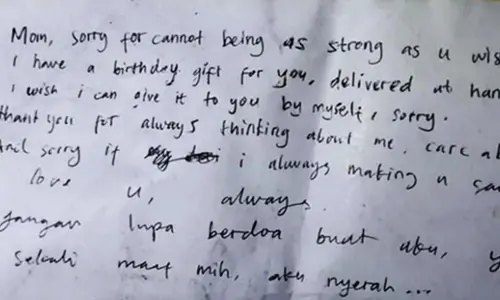 Mom, sorry for cannot being as strong as u wis
I have a birthday gift for you, delivered at han
I wish i can give it to you by myself, sorry.
thank you for always thinking about me, care a
And sorry if i always making u sa
love u, always
Jangan lupa berdoa buat aku, y
Sekali maaf mih, aku nyerah...